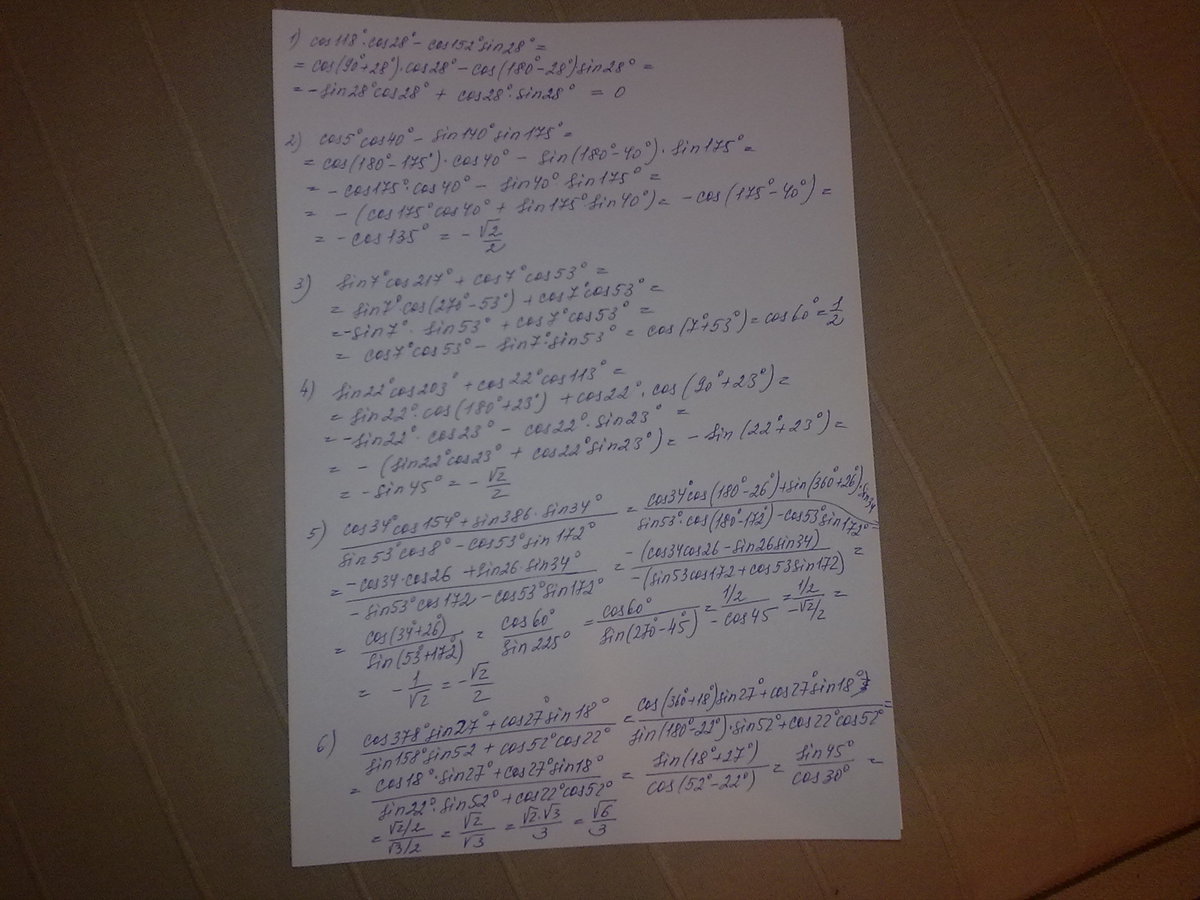 1) cos118°·cos28° - cos152°sin28° =
= cos(90°+28°)·cos28° - cos(180°-28°)sin28° =
= -sin28°cos28° + cos28°·sin28° = 0
2) cos5°cos40° - sin140°sin175° =
= cos(180°-175°)·cos40° - sin(180°-40°)·sin175° =
= -cos175°·cos40° - sin40°sin175° =
= -(cos175°cos40° + sin175°sin40°) = -cos(175°-40°) =
= -cos135° = -√2/2
3) sin7°cos217° + cos7°cos53° =
= sin7°·cos(270°-53°) + cos7°cos53° =
= -sin7°·sin53° + cos7°cos53° =
= cos7°cos53° - sin7°·sin53° = cos(7°+53°) = cos60° = 1/2
4) sin22°cos203° + cos22°cos113° =
= sin22°·cos(180°+23°) + cos22°·cos(90°+23°) =
= -sin22°·cos23° - cos22°·sin23° =
= -(sin22°cos23° + cos22°sin23°) = -sin(22°+23°) =
= -sin45° = -√2/2
5) (cos34°cos154° + sin386·sin34°)/(sin53°cos8° - cos53°sin172°) = (cos34°cos(180°-26°)+sin(360°+26°)·sin34)/(sin53°·cos(180°-172°)-cos53°sin172°) =
= (-cos34·cos26 + sin26·sin34°)/(-sin53°cos172 - cos53°sin172°) = (-(cos34cos26 - sin26sin34))/(-(sin53cos172 + cos53sin172)) =
= cos(34°+26°)/sin(53°+172°) = cos60°/sin225° = cos60°/sin(270°-45°) = (1/2)/(-cos45) = (1/2)/(-√2/2) =
= -1/√2 = -√2/2
6) (cos378°sin27° + cos27°sin18°)/(sin158°sin52 + cos52°cos22°) = (cos(360°+18°)sin27°+cos27°sin18°)/(sin(180°-22°)·sin52°+cos22°cos52°) =
= (cos18°·sin27° + cos27°sin18°)/(sin22°·sin52° + cos22°cos52°) = sin(18°+27°)/cos(52°-22°) = sin45°/cos30° =
= (√2/2)/(√3/2) = √2/√3 = √2·√3/3 = √6/3